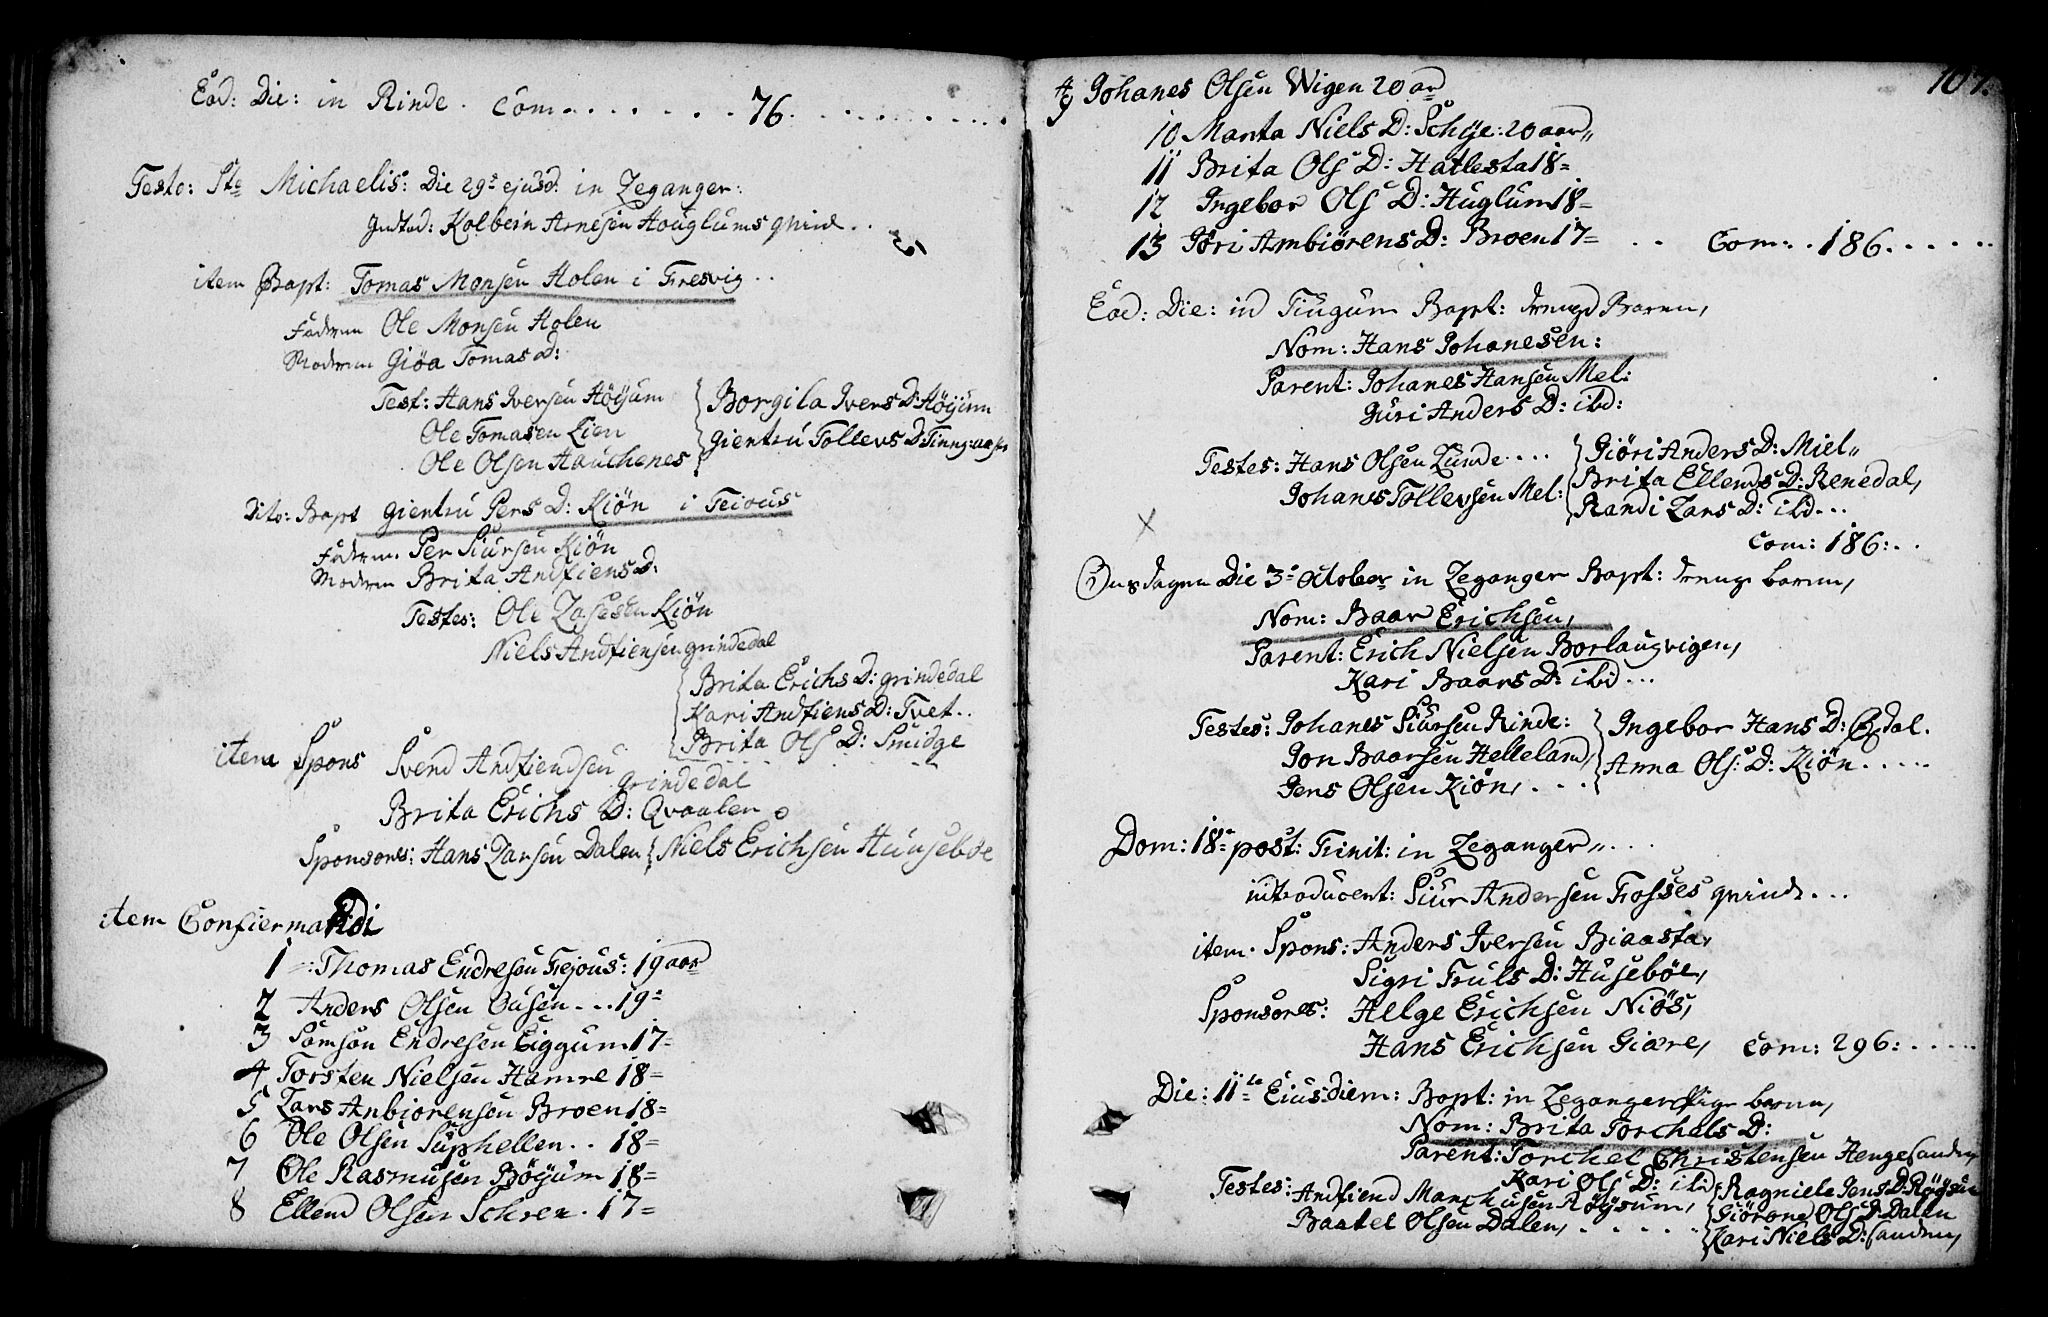 Eod: Die: in Rinde. Com . . . . . . . 76. . . . . . . . . .
Festo: Sto Michaelis: Die 29s ejusd: in Leganger:
Jntrod: Kolbein Arnesen Houglums qvind . .
item Bapt: Tomas Monsen Holen i Fresvig . .
Faderen Ole Monsen Holen
Moderen Giöa Tomas D:
Test: Hans Iversen Höÿum { Borgila Ivers D: Höÿum
Ole Tomasen Lien { Gientru Tollevs D:
Ole Olsen Hauchenes
Dito: Bapt Gientru Pers D: Kiön i Feious
Faderen. Per Siursen Kiön
Moderen Brita Andfiens D:
Testes: Ole Lasesen Kiön
Niels Andfiensen grindedal
{ Brita Erichs D: grindedal
Kari Andfiens D: Tvet..
Brita Ols D: Smidge
item Spons Svend Andfiendsen
Grindedal
Brita Erichs D: Qvaalen
Sponsores: Hans Larsen Dalen { Niels Erichsen Hunseböe
item Confiermandi
1 Thomas Endresen Fejous: 19 aar
2 Anders Olsen Ousen . . . 19=
3 Samson Endresen Eiggum 17=
4 Torsten Nielsen Hamre 18=
5 Lars Anbiorensen Broen 18=
6 Ole Olsen Suphellen . . 18=
7 Ole Rasmusen Böÿum 18=
8 Ellend Olsen Schree . 17=
107.
9 Johanes Olsen Wigen 20 ar
10 Marita Niels D: Schÿe: 20 aar,,
11 Brita Ols D: Hatlesta 18=
12 Ingebor Ols D: Huglum 18=
13 Göri Ambiörens D: Broen 17= . . Com: . 186. . . . . .
Eod: Die: in Tiugum Bapt: drenge Baren,
Nom: Hans Johanesen:
Parent: Johanes Hansen Mel:
Guri Anders D: ibd:
Testes: Hans Olsen Lunde . . . . { Giöri Anders D: Miel,,
Johanes Tollevsen Mel: { Brita Ellends D: Renedal,
Randi Lars D: ibd...
Com: 186: . .
Onsdagen Die 3s October in Leganger Bapt: drenge baren,
Nom: Baar Erichsen,
Parent: Erich Nielsen Borlaugvigen,
Kari Baars D: ibd...
Testes: Johanes Siursen Rinde: { Ingebor Hans D: Ødal.
Jon Baarsen Helleland, { Anna Ols: D: Kiön . . . . .
Jens Olsen Kiön, . . .
Dom: 18= post: Trinit: in Leganger,, . . .
introducert: Siur Andersen Fosses qvind . . .
item. Spons: Anders Iversen Biaasta,
Sigri Truls D: Huseböe,
Sponsores: Helge Erichsen Niös,
Hans Erichsen Giære, Com: 296: . . . . .
Die: 11te Eiusdiem: Bapt: in Leganger Pige baren,
Nom: Brita Torchels D:
Parent: Torchel Christensen Hengesanden
Kari Ols D: ibd
Testes: Andfiend Marchusen Röÿsum, { Ragniele Jens D: Röÿsu
Baatel Olsen Dalen, . . . . . { Giörone Ols D: Dalen
Kari Niels D: sanden,